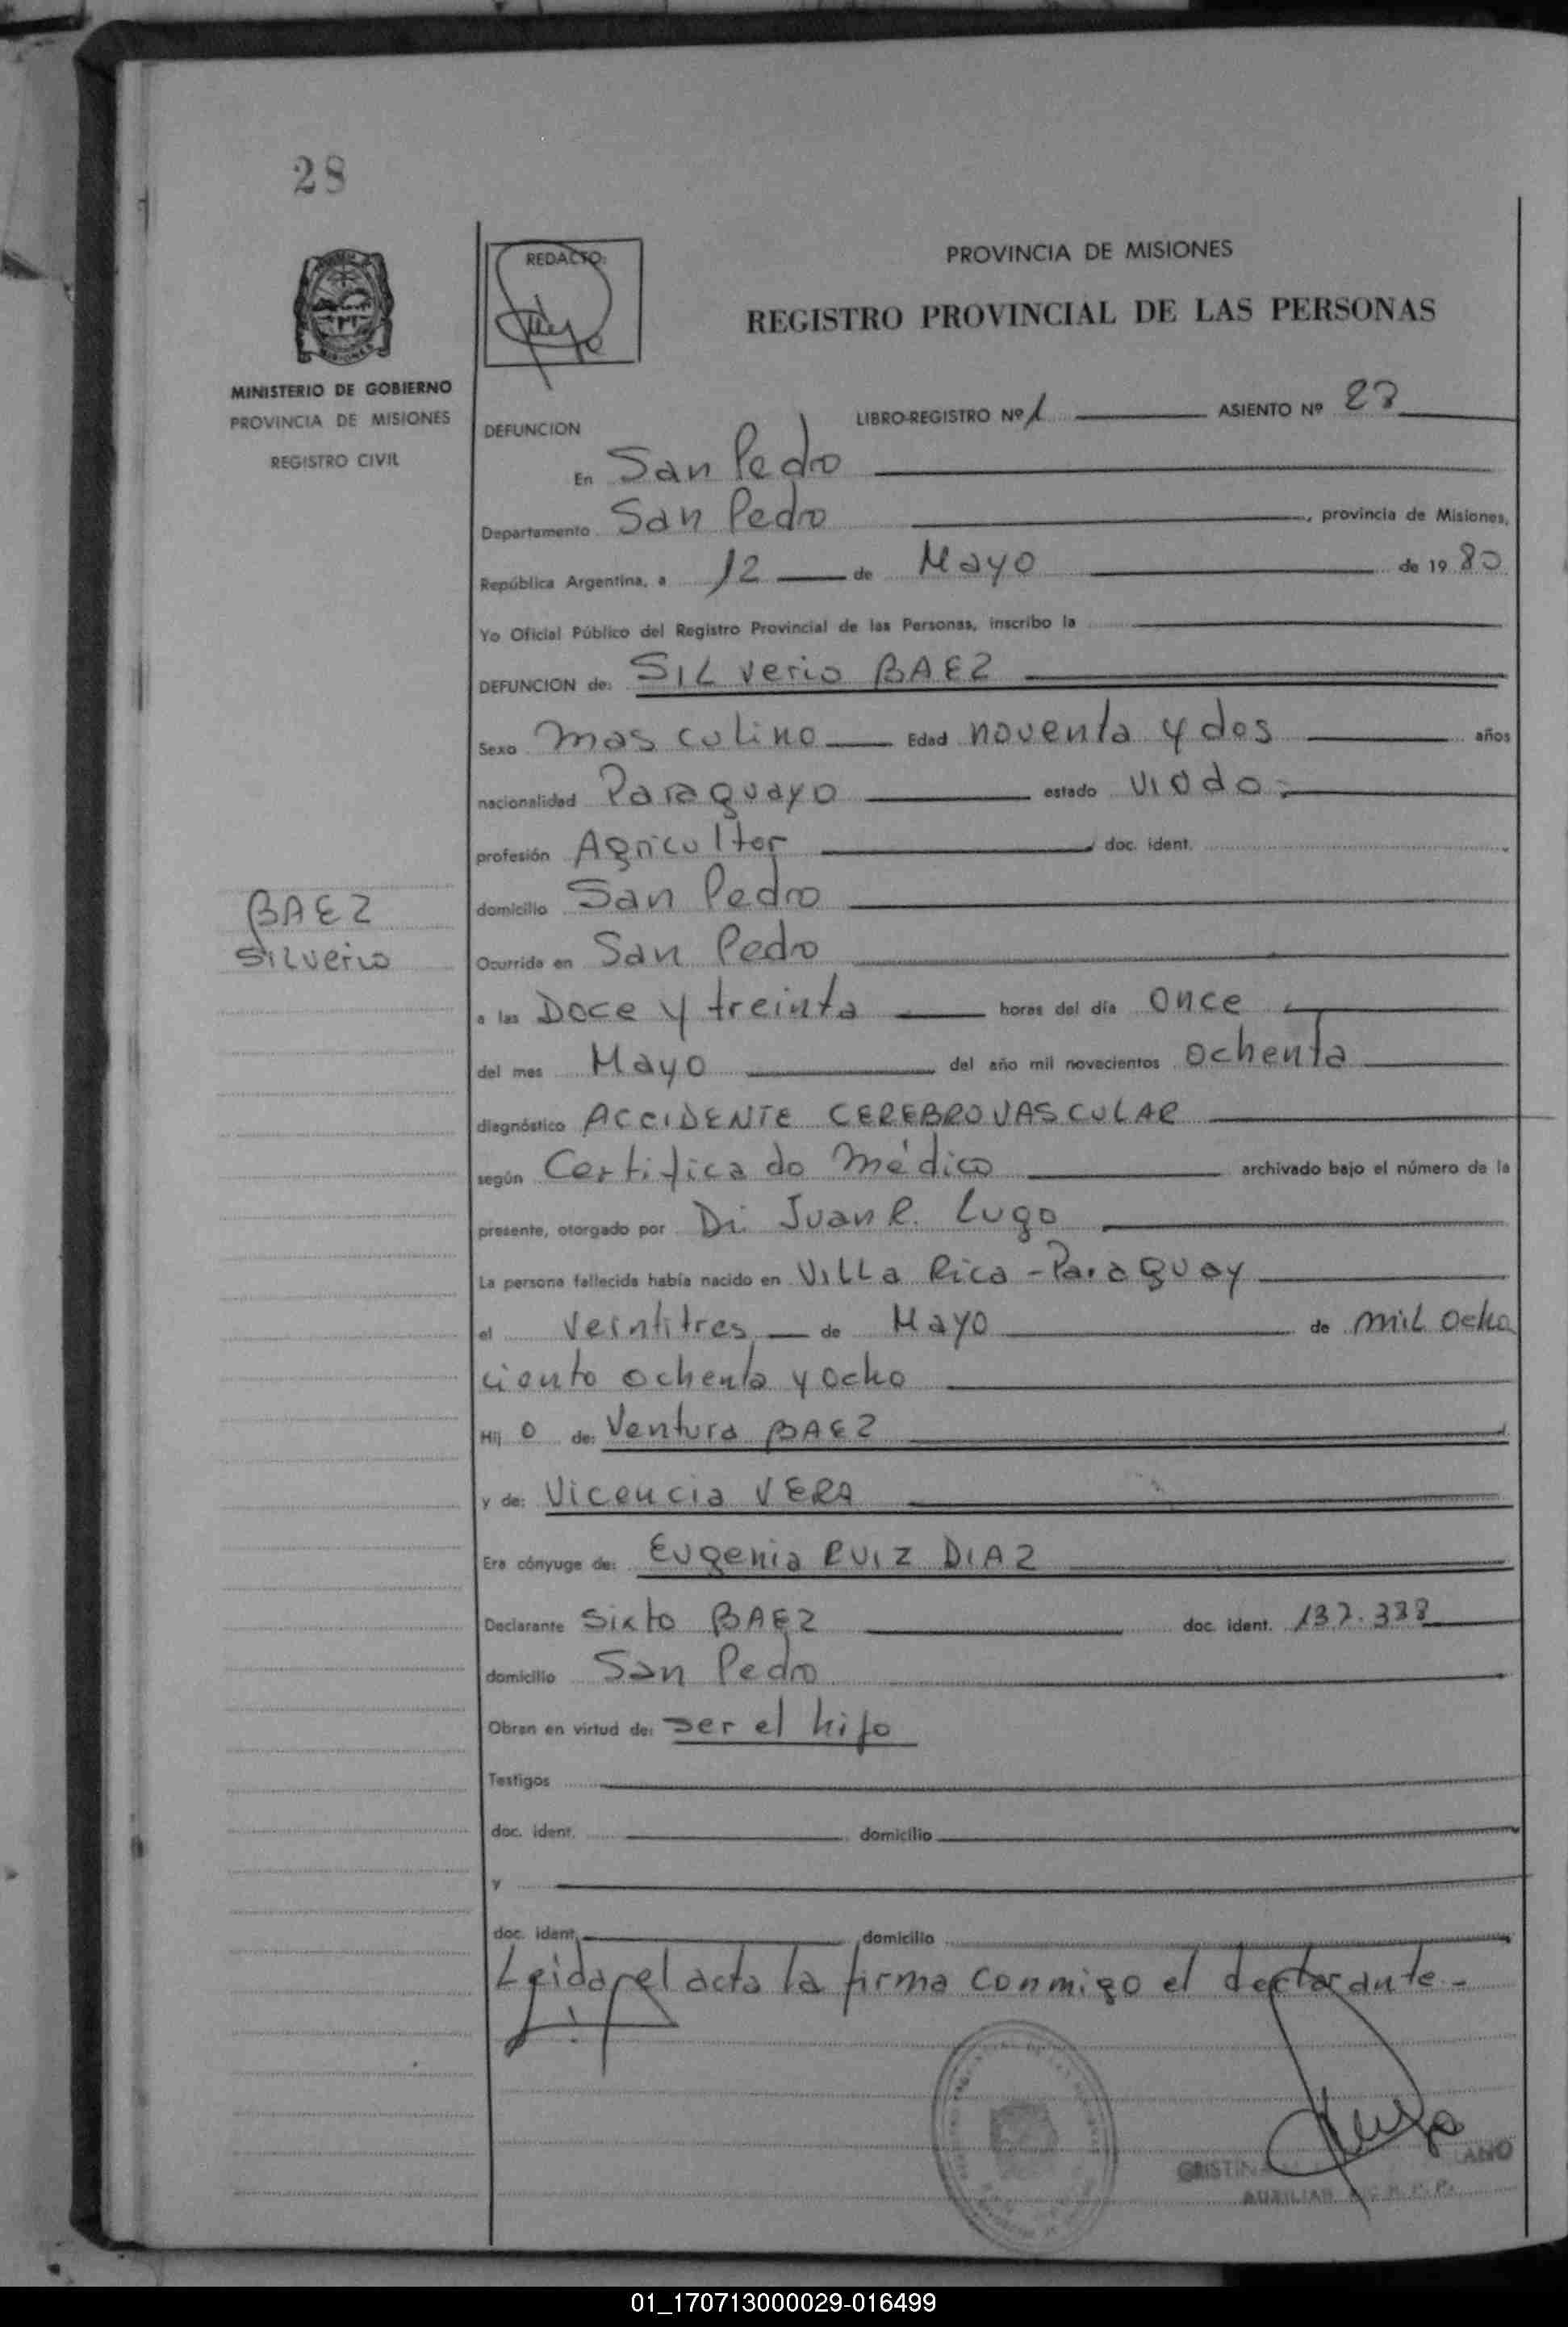 28
REDACTO:
PROVINCIA DE MISIONES
REGISTRO PROVINCIAL DE LAS PERSONAS
MINISTERIO DE GOBIERNO
PROVINCIA DE MISIONES
REGISTRO CIVIL
LIBRO-REGISTRO Nº 1 ASIENTO Nº
DEFUNCION
En San Pedro
Departamento San Pedro, provincia de Misiones,
República Argentina, a 12 de Mayo de 1980
Yo Oficial Público del Registro Provincial de las Personas, inscribo la
DEFUNCION de: SILverio BAEZ
Sexo masculino Edad noventa y dos años
nacionalidad Paraguayo estado viudo
profesión Agricultor doc. ident.
domicilio San Pedro
BAEZ
SiLverio
Ocurrida en San Pedro
a las Doce y treinta horas del día once
del mes Mayo del año mil novecientos ochenta
diagnóstico ACCIDENTE CEREBROVASCULAR
según Certificado médico archivado bajo el número de la
presente, otorgado por Dr. Juan R. Lugo
La persona fallecida había nacido en VILLa Rica - Paraguay
el Veintitres de Mayo de miL ocho
ciento ochenta y ocho
Hij o de: Ventura BAEZ
y de: Vicencia VERA
Era cónyuge de: Eugenia RUIZ DIAZ
Declarante Sixto BAEZ doc. ident.
domicilio San Pedro
Obran en virtud de: ser el hijo
Testigos
doc. ident. domicilio
y
doc. ident. domicilio
Leida el acta la firma conmigo el declarante.-
AUXILIAR
01_170713000029-016499